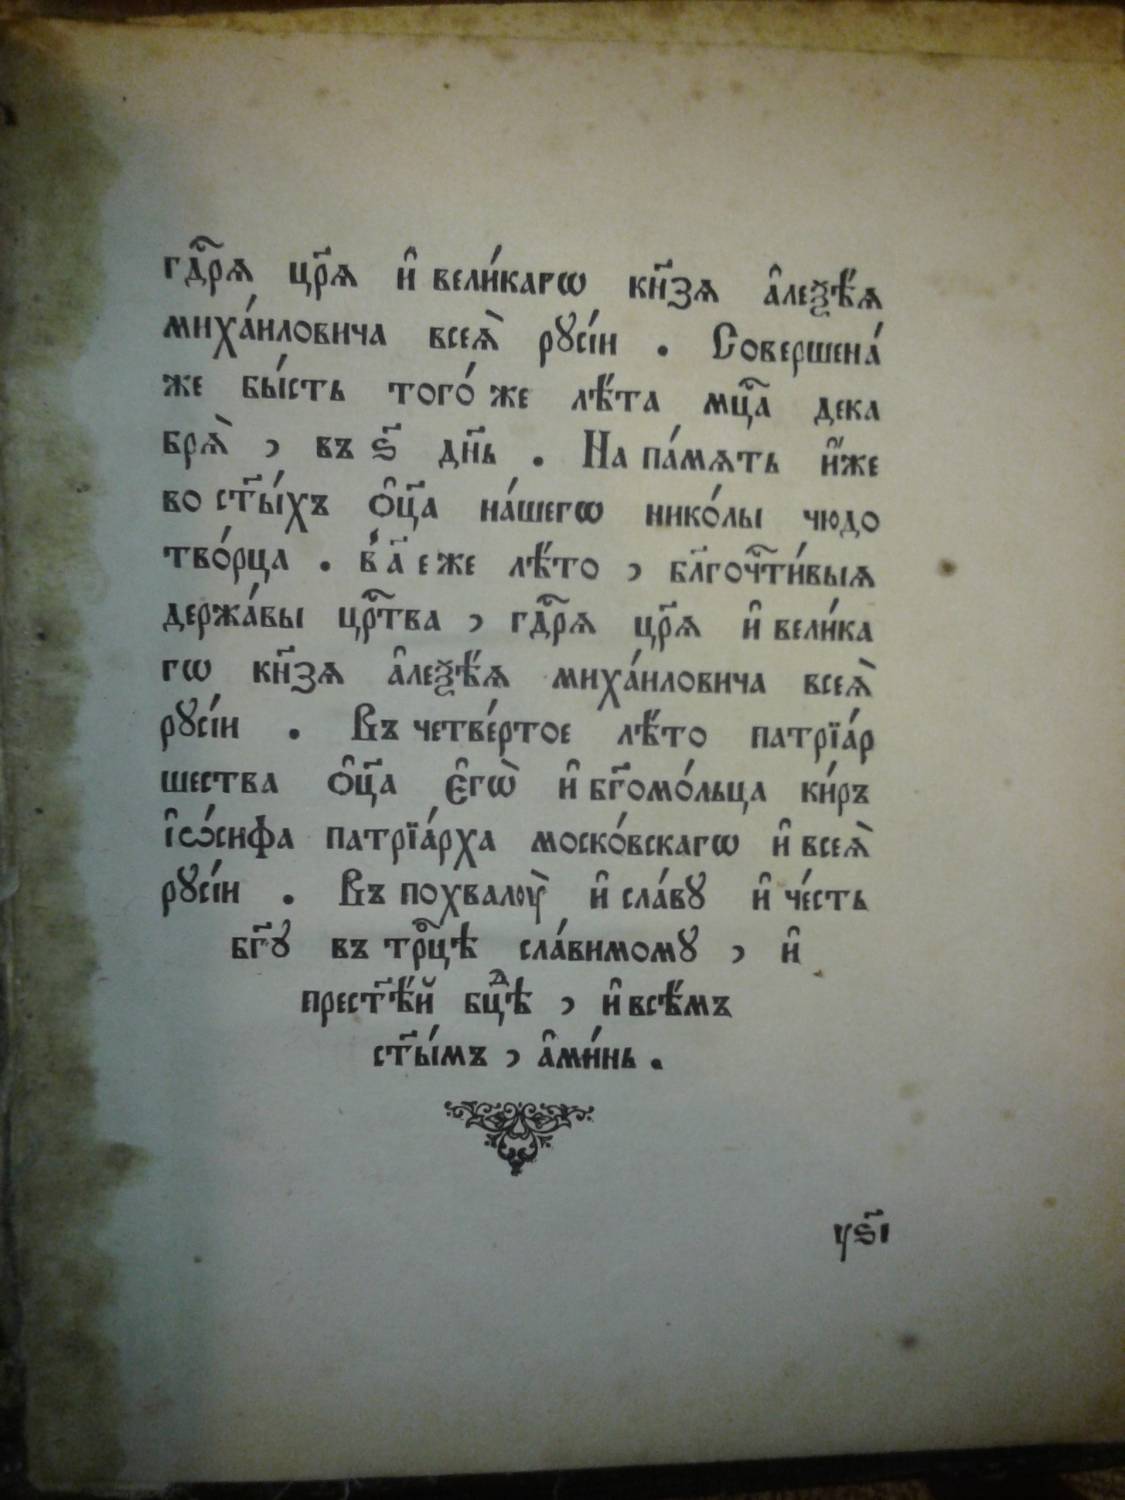 гдⷭ҇рѧ цр҃ѧ и҆ вели́кагѡ кн҃зѧ а҆леѯѣ́ѧ
миха́иловича всеѧ̀ рꙋсі́и . Совершена́
же бы́сть того́ же лѣ́та мцⷭ҇а дека
брѧ̀ , въ ѕ҃ дн҃ь . На па́мѧть и҆́же
во ст҃ы́хъ ѻ҆ц҃а на́шегѡ нико́лы чюдо
тво́рца . в́ а҃ е же лѣ́то , бл҃гочⷭ҇ти́выѧ
держа́вы црⷭ҇тва , гдⷭ҇рѧ цр҃ѧ и҆ вели́ка
гѡ кн҃зѧ а҆леѯѣ́ѧ миха́иловича всеѧ̀
рꙋсі́и . Въ четве́ртое лѣ́то патрїа́р
шества ѻ҆ц҃а є҆гѡ̀ и҆ бг҃омо́льца ки́ръ
і҆ѡ́сифа патрїа́рха моско́вскагѡ и҆ всеѧ̀
рꙋсі́и . Въ похвалоу̀ и҆ сла́вꙋ и҆ че́сть
бг҃ꙋ въ трⷪ҇цѣ сла́вимомꙋ , и҆
прест҃ѣ́й бцⷣѣ , и҆ всѣ́мъ
ст҃ы́мъ , а҆ми́нь .
уѕ҃і